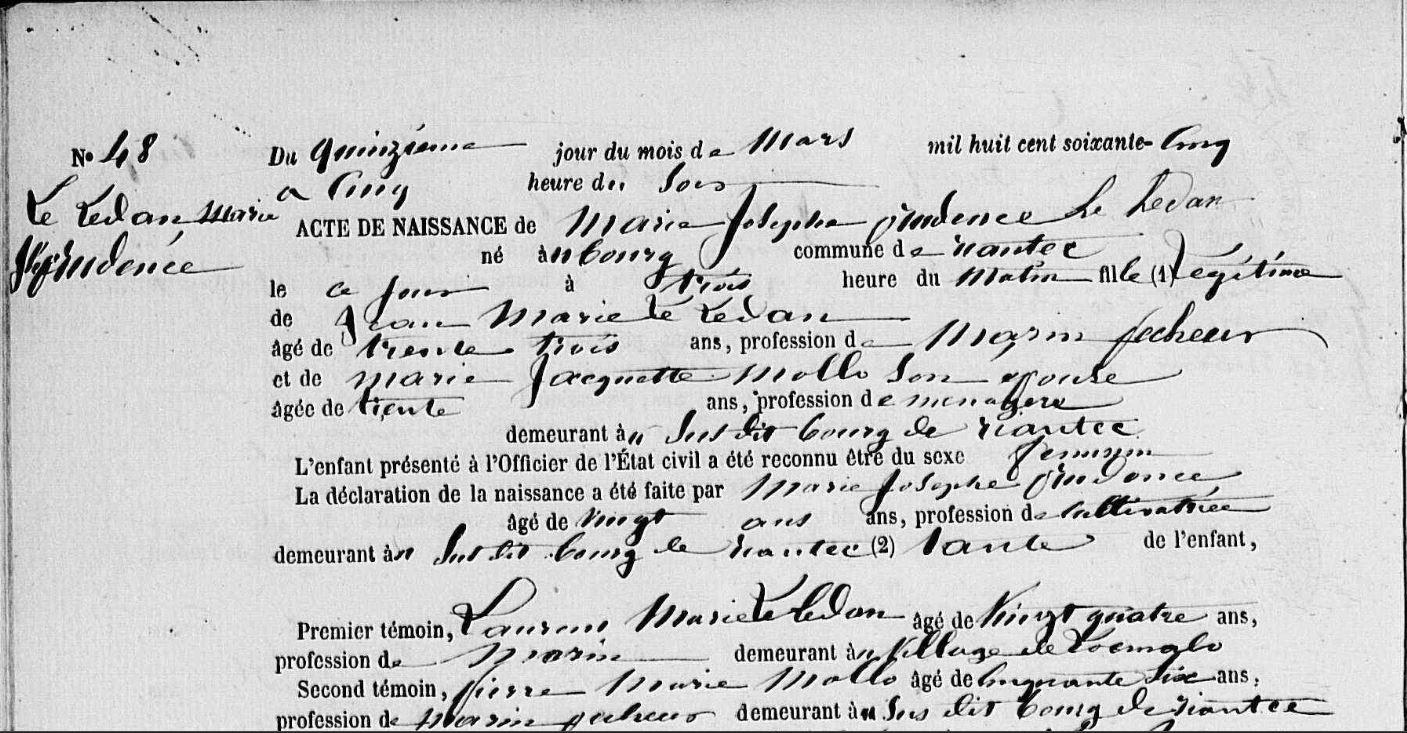 N° 48
Le Ledan Marie
Jhe prudence
Du quinzième jour du mois de Mars mil huit cent soixante-Cinq
a Cinq heure du Soir
ACTE DE NAISSANCE de Marie Josephe prudence Le Ledan
né à u bourg commune de riantec
le ce jour à trois heure du matin fille (1) Légitime
de Jean Marie Le Ledan
âgé de trente trois ans, profession de Marin pecheur
et de marie Jacquette mollo Son epouse
âgée de trente ans, profession de menagere
demeurant à u Sus dit bourg de riantec
L'enfant présenté à l'Officier de l'État civil a été reconnu être du sexe feminin
La déclaration de la naissance a été faite par Marie Josephe prudence
âgé de vingt ans ans, profession de Cultivatrice
demeurant à u Sus dit bourg de riantec (2) tante de l'enfant,
Premier témoin, Laurent Marie Le ledan âgé de Vingt quatre ans,
profession de marin demeurant à u village de Locmalo
Second témoin, pierre Marie Mollo âgé de Cinquante Six ans,
profession de marin pecheur demeurant à u Sus dit bourg de riantec